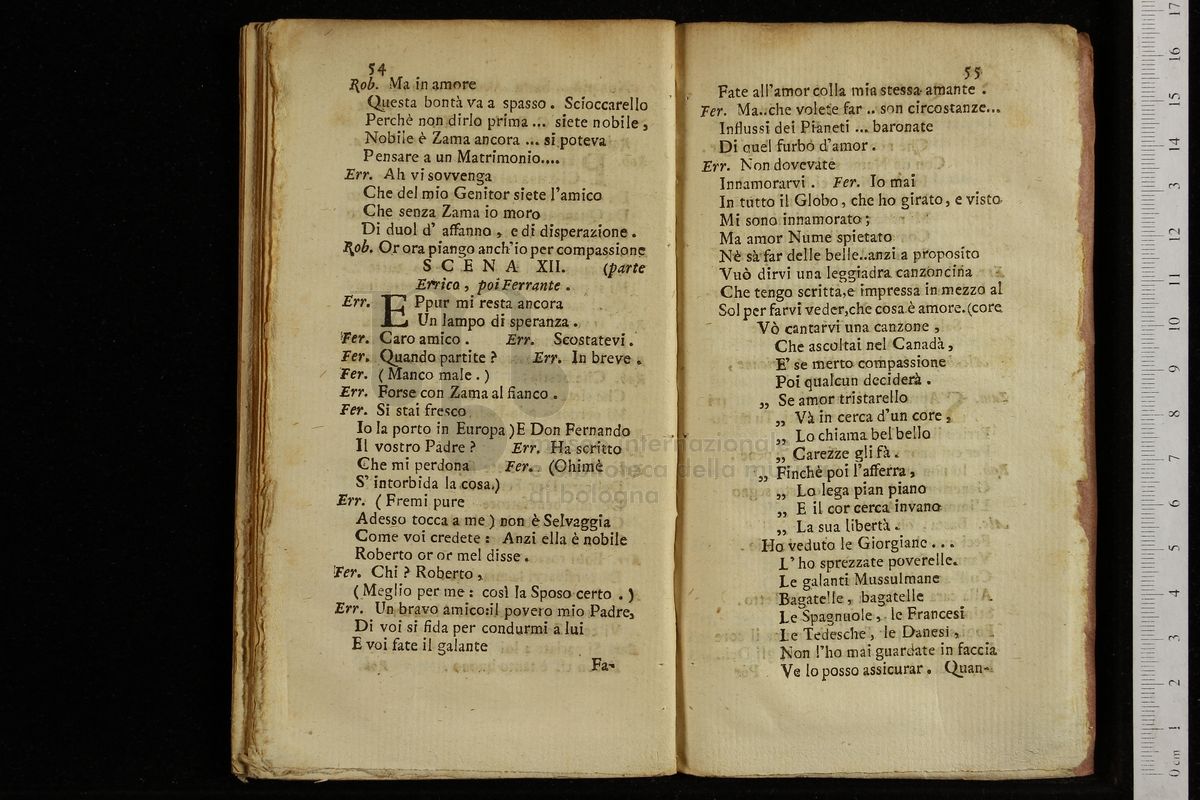 54
Rob. Ma in amore
Questa bontà va a spasso. Scioccarello
Perchè non dirlo prima ... siete nobile,
Nobile è Zama ancora ... si poteva
Pensare a un Matrimonio....
Err. Ah vi sovvenga
Che del mio Genitor siete l'amico
Che senza Zama io moro
Di duol d' affanno, e di disperazione.
Rob. Or ora piango anch'io per compassione
SCENA XII. (parte
Errico, poi Ferrante.
Err. EPpur mi resta ancora
Un lampo di speranza.
Fer. Caro amico. Err. Scostatevi.
Fer. Quando partite? Err. In breve.
Fer. (Manco male.)
Err. Forse con Zama al fianco.
Fer. Si stai fresco
Io la porto in Europa) E Don Fernando
Il vostro Padre? Err. Ha scritto
Che mi perdona Fer. (Ohimè
S' intorbida la cosa.)
Err. (Fremi pure
Adesso tocca a me) non è Selvaggia
Come voi credete: Anzi ella è nobile
Roberto or or mel disse.
Fer. Chi? Roberto,
(Meglio per me: così la Sposo certo.)
Err. Un bravo amico:il povero mio Padre,
Di voi si fida per condurmi a lui
E voi fate il galante
Fa-
55
Fate all'amor colla mia stessa amante.
Fer. Ma..che volete far .. son circostanze...
Influssi dei Pianeti ... baronate
Di quel furbo d'amor.
Err. Non dovevate
Innamorarvi. Fer. Io mai
In tutto il Globo, che ho girato, e visto
Mi sono innamorato;
Ma amor Nume spietato
Nè sà far delle belle..anzi a proposito
Vuò dirvi una leggiadra canzoncina
Che tengo scritta,e impressa in mezzo al
Sol per farvi veder,che cosa è amore.(core
Vò cantarvi una canzone,
Che ascoltai nel Canadà,
E' se merto compassione
Poi qualcun deciderà.
„ Se amor tristarello
„ Và in cerca d'un core,
„ Lo chiama bel bello
„ Carezze gli fà.
„ Finchè poi l'afferra,
„ Lo lega pian piano
„ E il cor cerca invano
„ La sua libertà.
Ho veduto le Giorgiane...
L' ho sprezzate poverelle.
Le galanti Mussulmane
Bagatelle, bagatelle
Le Spagnuole, le Francesi
Le Tedesche, le Danesi,
Non l'ho mai guardate in faccia
Ve lo posso assicurar. Quan-
museo internazionale
biblioteca della mu
di bologna